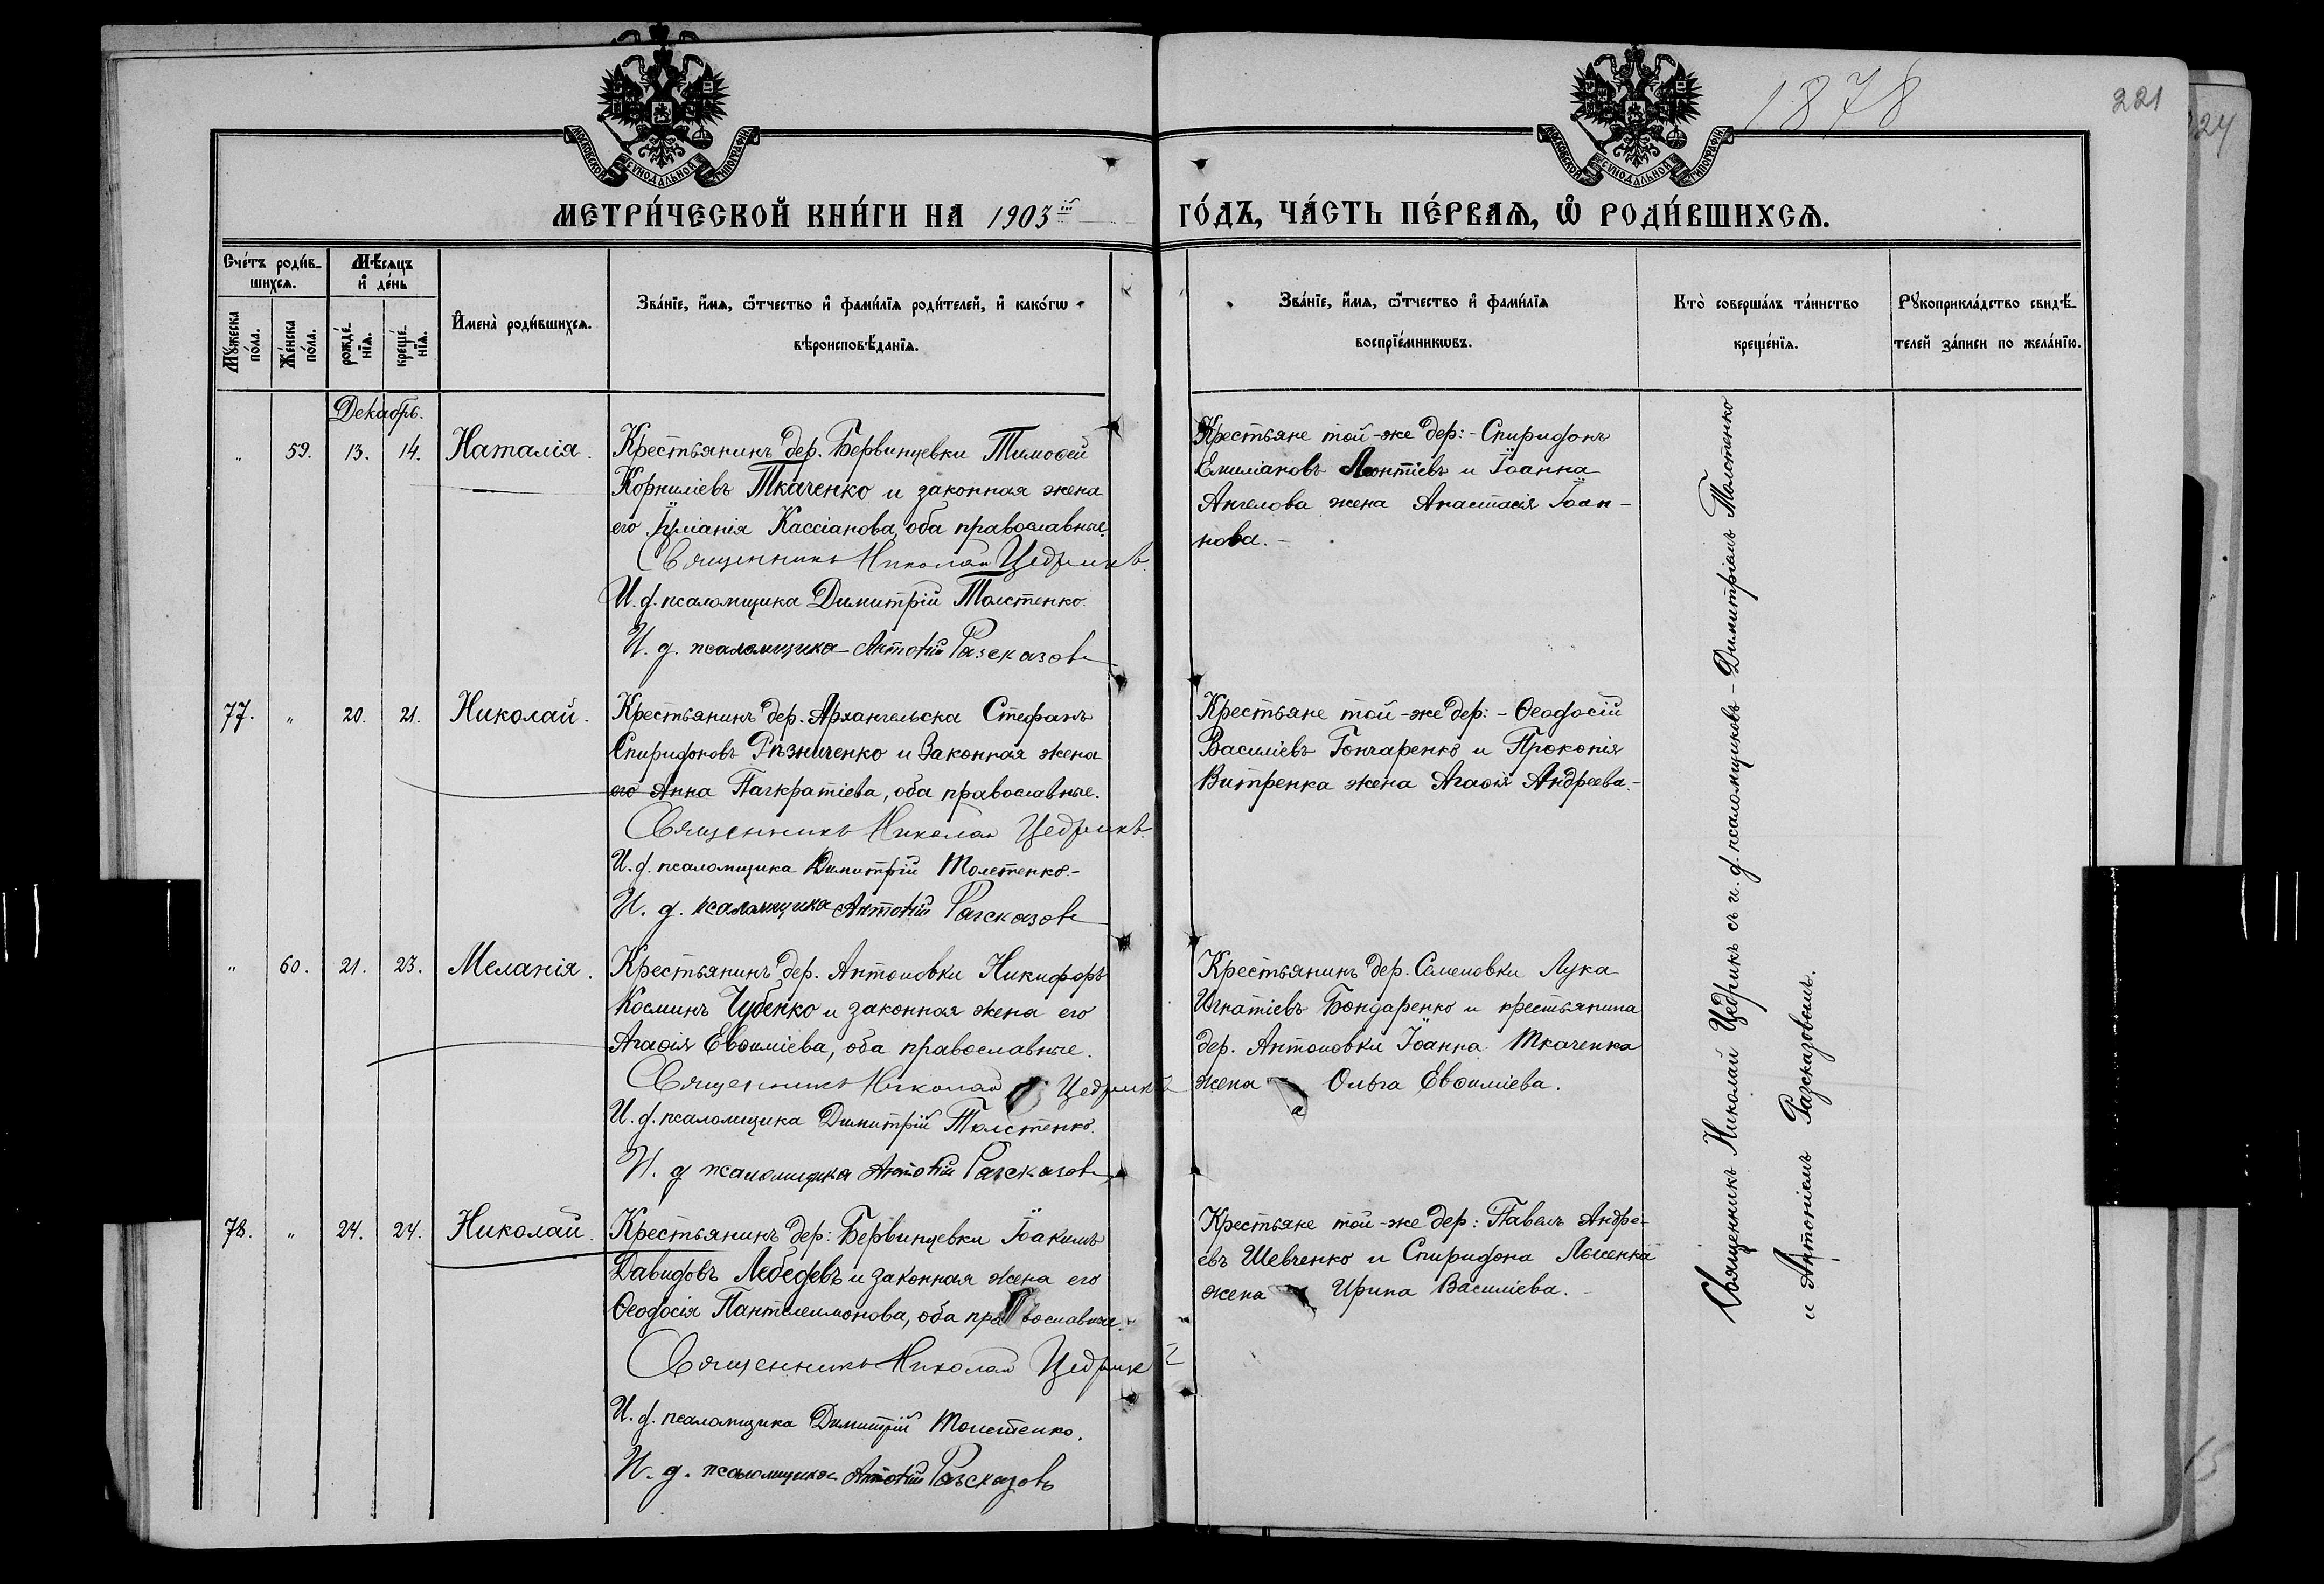 1878
221
24
МОСКОВСКОЙ СѴНОДАЛЬНОЙ ТИПОГРАФІИ
МОСКОВСКОЙ СѴНОДАЛЬНОЙ ТИПОГРАФІИ
МЕТРИ́ЧЕСКОЙ КНИ́ГИ НА 1903й ГО́ДЪ, ЧА́СТЬ ПЕ́РВАѦ, Ѽ РОДИ́ВШИХСѦ.
Сче́тъ роди́в-
шихсѧ.
Мꙋ́жеска по́ла.
Же́нска по́ла.
Мѣ́сѧцъ
и҆ де́нь
рожде́-
нїѧ.
креще́-
нїѧ.
И҆мена̀ роди́вшихсѧ.
Зва́нїе, и҆́мѧ, ѻ҆́тчество и҆ фами́лїѧ роди́телей, и҆ како́гѡ
вѣроисповѣ́данїѧ.
Зва́нїе, и҆́мѧ, ѻ҆́тчество и҆ фами́лїѧ
воспрїе́мникѡвъ.
Кто̀ соверша́лъ та́инство
креще́нїѧ.
Рꙋкоприкла́дство свидѣ́-
телей за́писи по жела́нїю.
Декабрь.
„ 59. 13. 14. Наталія.
Крестьянинъ дер. Бервинцевки Тимоѳей
Корниліевъ Ткаченко и законная жена
его Іуліанія Кассіанова, оба православные.
Священникъ Николай Цедрикъ
И. д. псаломщика Димитрій Толстенко.
И. д. псаломщика Антоній Разсказовъ
Крестьяне той-же дер:- Спиридонъ
Емиліановъ Леонтіевъ и Іоанна
Ангелова жена Анастасія Іоан-
нова.-
77. „ 20. 21. Николай.
Крестьянинъ дер. Архангельска Стефанъ
Спиридоновъ Рѣзниченко и Законная жена
его Анна Панкратіева, оба православные.
Священникъ Николай Цедрикъ
И. д. псаломщика Димитрій Толстенко.-
И. д. псаломщика Антоній Разсказовъ
Крестьяне той-же дер:- Ѳеодосій
Василіевъ Гончаренко и Прокопія
Витренка жена Агаѳія Андреева.-
„ 60. 21. 23. Меланія.
Крестьянинъ дер. Антоновки Никифоръ
Косминъ Чубенко и законная жена его
Агаѳія Евѳиміева, оба православные.
Священникъ Николай Цедрикъ
И. д. псаломщика Димитрій Толстенко.
И. д. псаломщика Антоній Разсказовъ
Крестьянинъ дер. Семеновки Лука
Игнатіевъ Бондаренко и крестьянина
дер. Антоновки Іоанна Ткаченка
жена Ольга Евѳиміева.
78. „ 24. 24. Николай.
Крестьянинъ дер: Бервинцевки Іоакимъ
Давидовъ Лебедевъ и законная жена его
Ѳеодосія Пантелеимонова, оба православные.
Священникъ Николай Цедрикъ
И. д. псаломщика Димитрій Толстенко.
И. д. псаломщика Антоній Разсказовъ
Крестьяне той-же дер: Павелъ Андре-
евъ Шевченко и Спиридона Лысенка
жена Ирина Василіева.-
Священникъ Николай Цедрикъ съ и. д. псаломщиковъ - Димитріемъ Толстенко
и Антоніемъ Разсказовымъ.